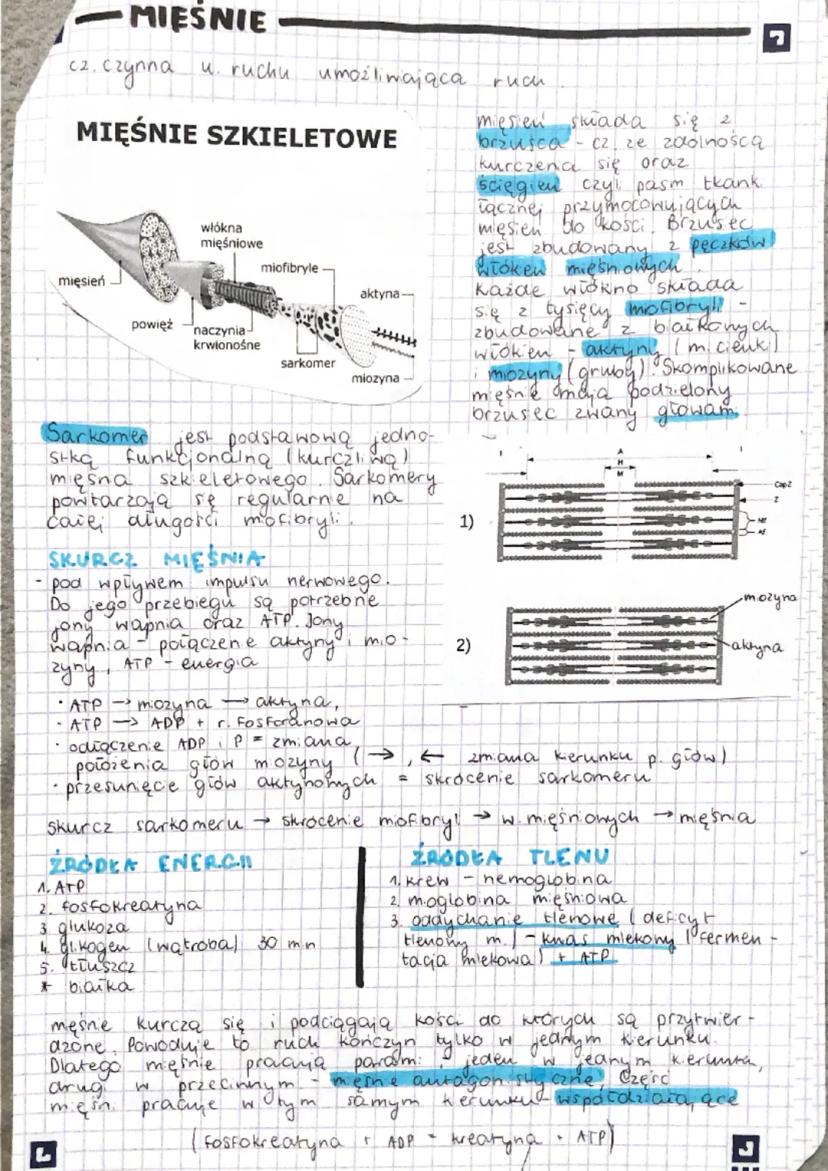 MIĘŚNIE
cz. czynna u. ruchu umożliwiająca ruch.
MIĘŚNIE SZKIELETOWE
włókna
mięśniowe
miofibryle
aktyna
mięsień
powięź
naczynia
krwionośne
sarkomer
miozyna
mięsień składa się z
brzuśca - cz. ze zdolnością
kurczenia się oraz
ścięgien czyli pasm tkank.
łącznej przymocowujących
mięsień do kości. Brzusiec
jest zbudowany z pęczków
włókien mięśniowych.
Każde włókno składa
się z tysięcy miofibryli -
zbudowane z białkowych
włókien - aktyny (m. cienki)
i miozyny (gruby). Skomplikowane
mięśnie mają podzielony
brzusiec zwany głowam.
Sarkomer jest podstawową jedno-
stką funkcjonalną (kurczliwą)
mięśna szkieletowego. Sarkomery
powtarzają się regularnie na
całej długości miofibryli.
I A I
H
M
Cap Z
Z
1)
Mf
Af
SKURCZ MIĘŚNIA
- pod wpływem impulsu nerwowego.
Do jego przebiegu są potrzebne
jony wapnia oraz ATP. Jony
wapnia - połączenie aktyny i mio-
zyny, ATP - energia
miozyna
2)
aktyna
· ATP → miozyna → aktyna,
· ATP → ADP + r. fosforanowa
· odłączenie ADP i P = zmiana
położenia głów miozyny (→, ← zmiana kierunku p. głów)
· przesunięcie głów aktynowych = skrócenie sarkomeru
skurcz sarkomeru → skrócenie miofibryl → w. mięśniowych → mięśnia
ŹRÓDŁA ENERGII
1. ATP
2. fosfokreatyna
3. glukoza
4. glikogen (wątroba) 30 min
5. tłuszcz
* białka
ŹRÓDŁA TLENU
1. krew - hemoglobina
2. mioglobina mięśniowa
3. oddychanie tlenowe (deficyt
tlenowy m.) - kwas mlekowy (fermen-
tacja mlekowa) + ATP
mięśnie kurczą się i podciągają kości do których są przytwier-
dzone. Powoduje to ruch kończyn tylko w jednym kierunku.
Dlatego mięśnie pracują parami: jeden w jednym kierunku,
drugi w przeciwnym - mięśnie antagonistyczne. Część
mięśni pracuje w tym samym kierunku - współdziałające
(fosfokreatyna + ADP = kreatyna + ATP)